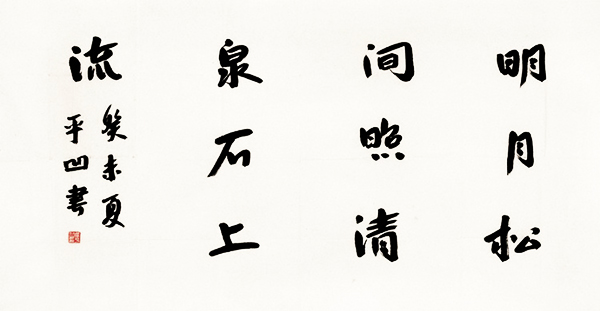 明月松
间照清
泉石上
流
癸未夏
平凹書